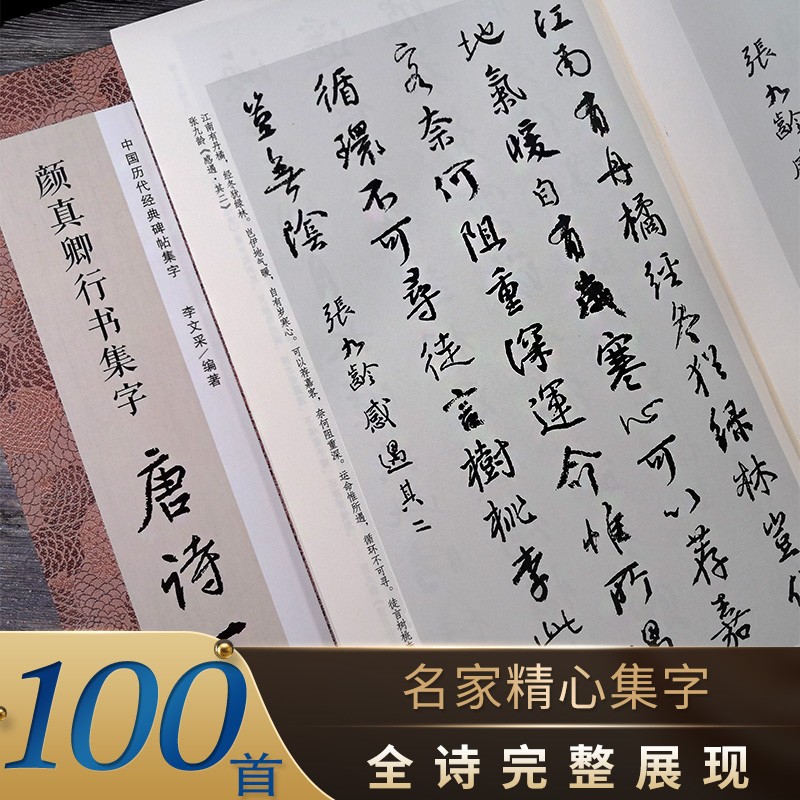 張九齡
江南有丹橘經冬猶緑林豈
地氣暖自有歲寒心可以荐嘉
客奈何阻重深運命惟所遇
循環不可尋徒言樹桃李此
豈無陰
張九齡感遇其二
江南有丹橘，经冬犹绿林。岂伊地气暖，自有岁寒心。可以荐嘉客，奈何阻重深。运命惟所遇，循环不可寻。徒言树桃
张九龄《感遇·其二》
中国历代经典碑帖集字
李文采/编著
颜真卿行书集字
唐诗
100首
名家精心集字
全诗完整展现